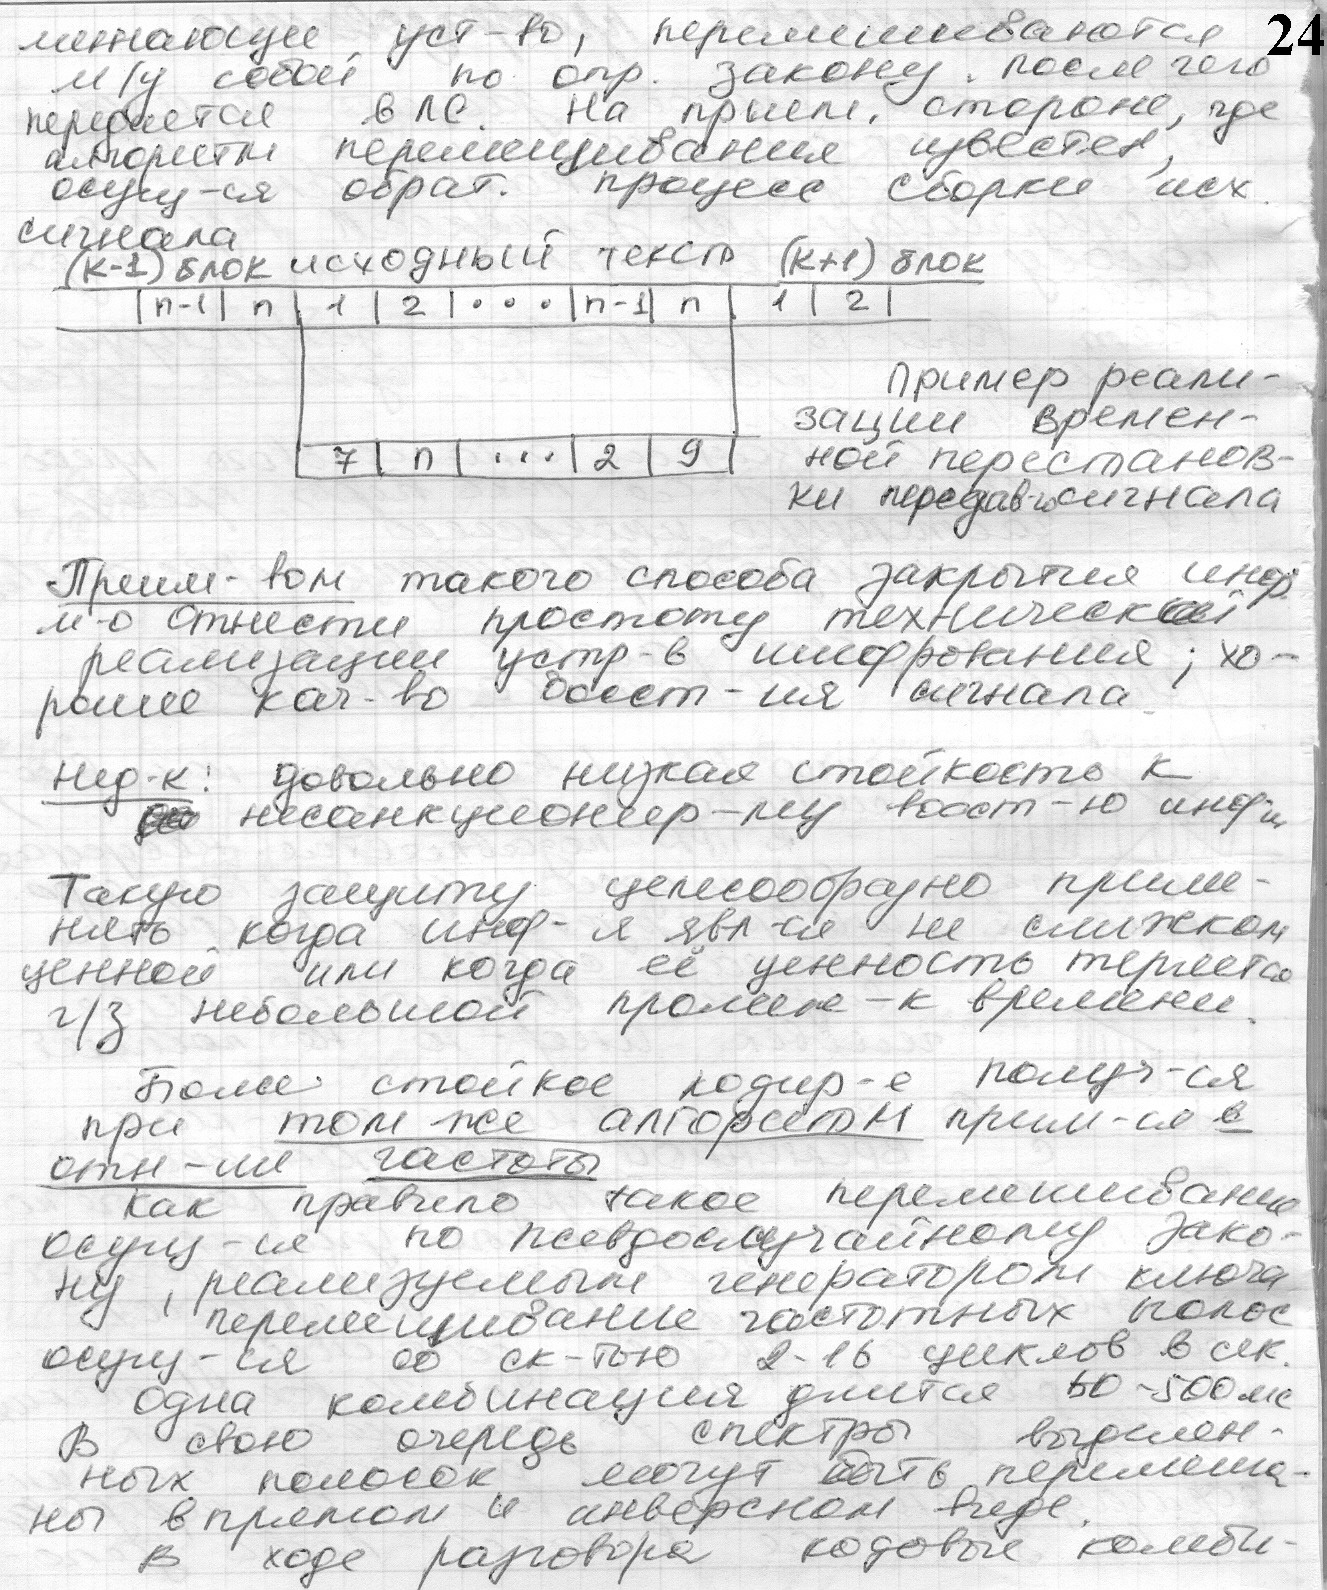 24
минающее уст-во, перемешиваются
м/у собой по опр. закону. после чего
передается в ЛС. На прием. стороне, где
алгоритм перемешивания известен,
осущ-ся обрат. процесс сборки исх.
сигнала
(к-1) блок исходный текст (к+1) блок
n-1 n 1 2 ... n-1 n 1 2
7 n ... 2 9
Пример реали-
зации времен-
ной перестанов-
ки передав-го сигнала
Преим-вом такого способа закрытия инф.
м-о отнести простоту технической
реализации устр-в шифрования; хо-
рошее кач-во восст-ия сигнала
Нед-к: довольно низкая стойкость к
несанкционир-му восст-ю инф-и
Такую защиту целесообразно приме-
нять когда инф-я явл-ся не слишком
ценной или когда её ценность теряется
ч/з небольшой промеж-к времени.
Более стойкое кодир-е получ-ся
при том же алгоритм прим-ся в
отн-ии частоты
Как правило такое перемешивание
осущ-ся по псевдослучайному зако-
ну, реализуемым генератором ключа
перемешивание частотных полос
осущ-ся со ск-тью 2-16 циклов в сек.
Одна комбинация длится 60-500мс
В свою очередь спектры выделен-
ных полосок могут быть перемеша-
ны в прямом и инверсном виде.
В ходе разговора кодовые комби-